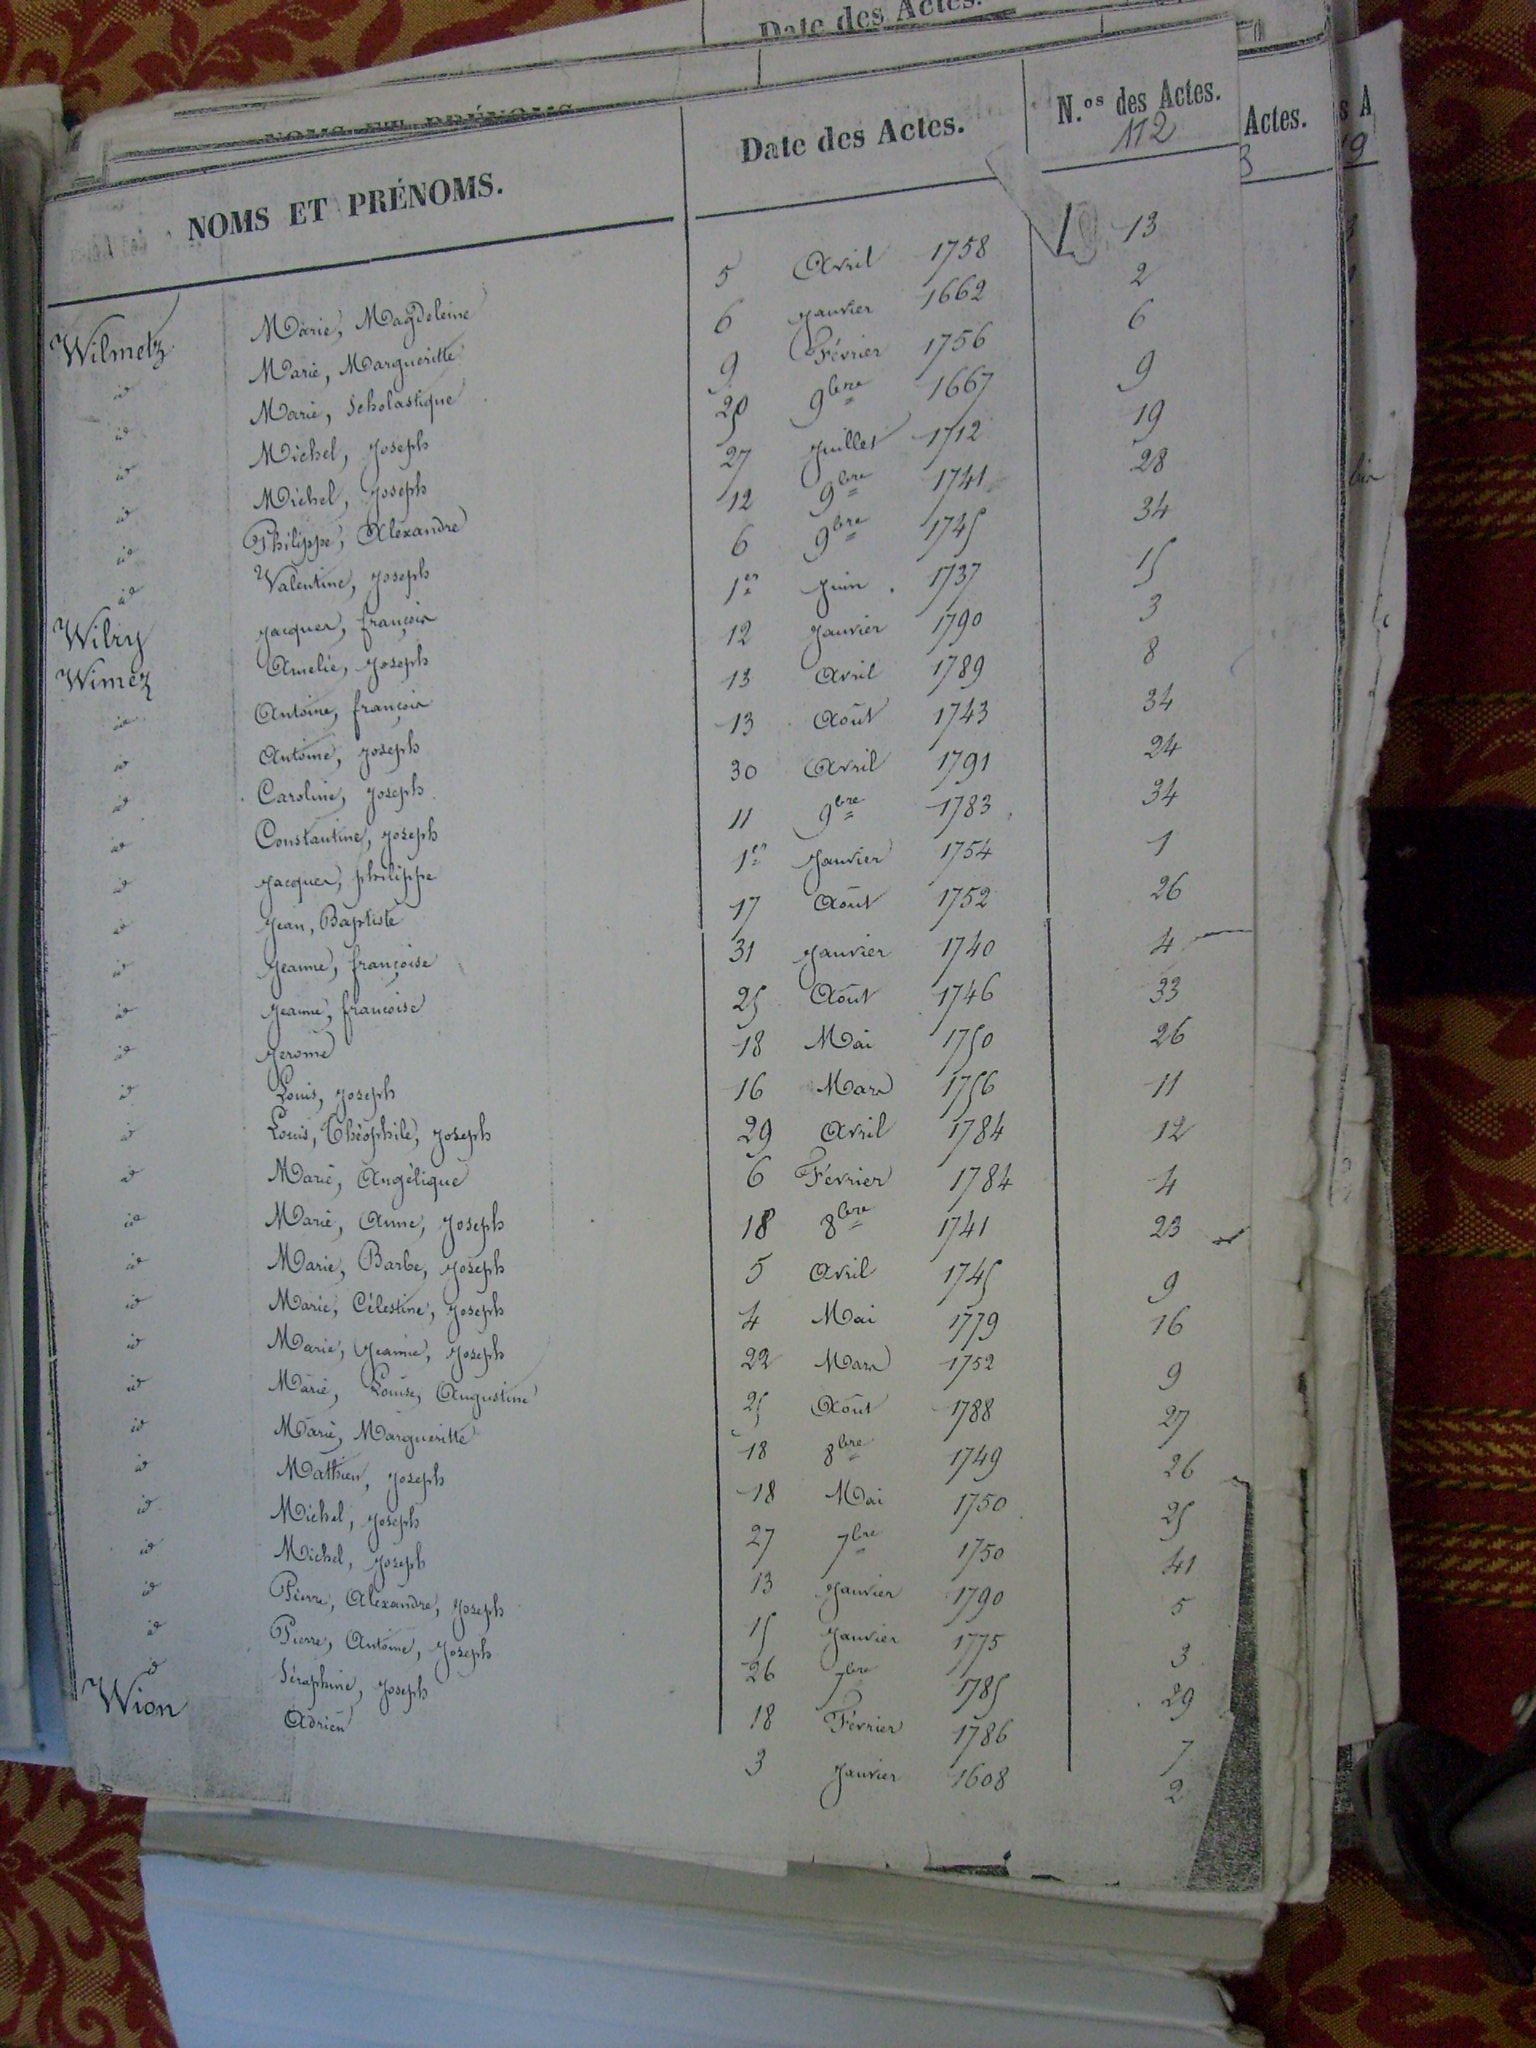 Date des Actes.
NOMS ET PRÉNOMS
NOMS ET PRÉNOMS. Date des Actes. N.os des Actes. Actes.
112
Wilmetz Marie, Magdeleine 5 Avril 1758 13
id Marie, Margueritte 6 Janvier 1662 2
id Marie, Scholastique 9 Février 1756 6
id Michel, Joseph 9bre 1667 9
id Michel, Joseph 27 Juillet 1712 19
id Philippe, Alexandre 12 9bre 1741 28
id Valentine, Joseph 6 9bre 1745 34
Wilry Jacques, françois 1er Juin 1737 15
Wimez Amelie, Joseph 12 Janvier 1790 3
id Antoine, françois 13 Avril 1789 8
id Antoine, Joseph 13 Août 1743 34
id Caroline, Joseph 30 Avril 1791 24
id Constantine, Joseph 11 9bre 1783 34
id Jacques, philippe 1er Janvier 1754 1
id Jean, Baptiste 17 Août 1752 26
id Jeanne, françoise 31 Janvier 1740 4
id Jeanne, francoise 25 Août 1746 33
id Jerome 18 Mai 1750 26
id Louis, Joseph 16 Mars 1756 11
id Louis, Théophile, Joseph 29 Avril 1784 12
id Marie, Angélique 6 Février 1784 4
id Marie, Anne, Joseph 18 8bre 1741 23
id Marie, Barbe, Joseph 5 Avril 1745 9
id Marie, Célestine, Joseph 4 Mai 1779 16
id Marie, Jeanne, Joseph 22 Mars 1752 9
id Marie, Louise, Augustine 25 Août 1788 27
id Marie, Margueritte 18 8bre 1749 26
id Mathieu, Joseph 18 Mai 1750 25
id Michel, Joseph 27 7bre 1750 41
id Michel, Joseph 13 Janvier 1790 5
id Pierre, Alexandre, Joseph 15 Janvier 1775 3
id Pierre, Antoine, Joseph 26 7bre 1785 29
id Séraphine, Joseph 18 Février 1786 7
Wion Adrien 3 Janvier 1608 2